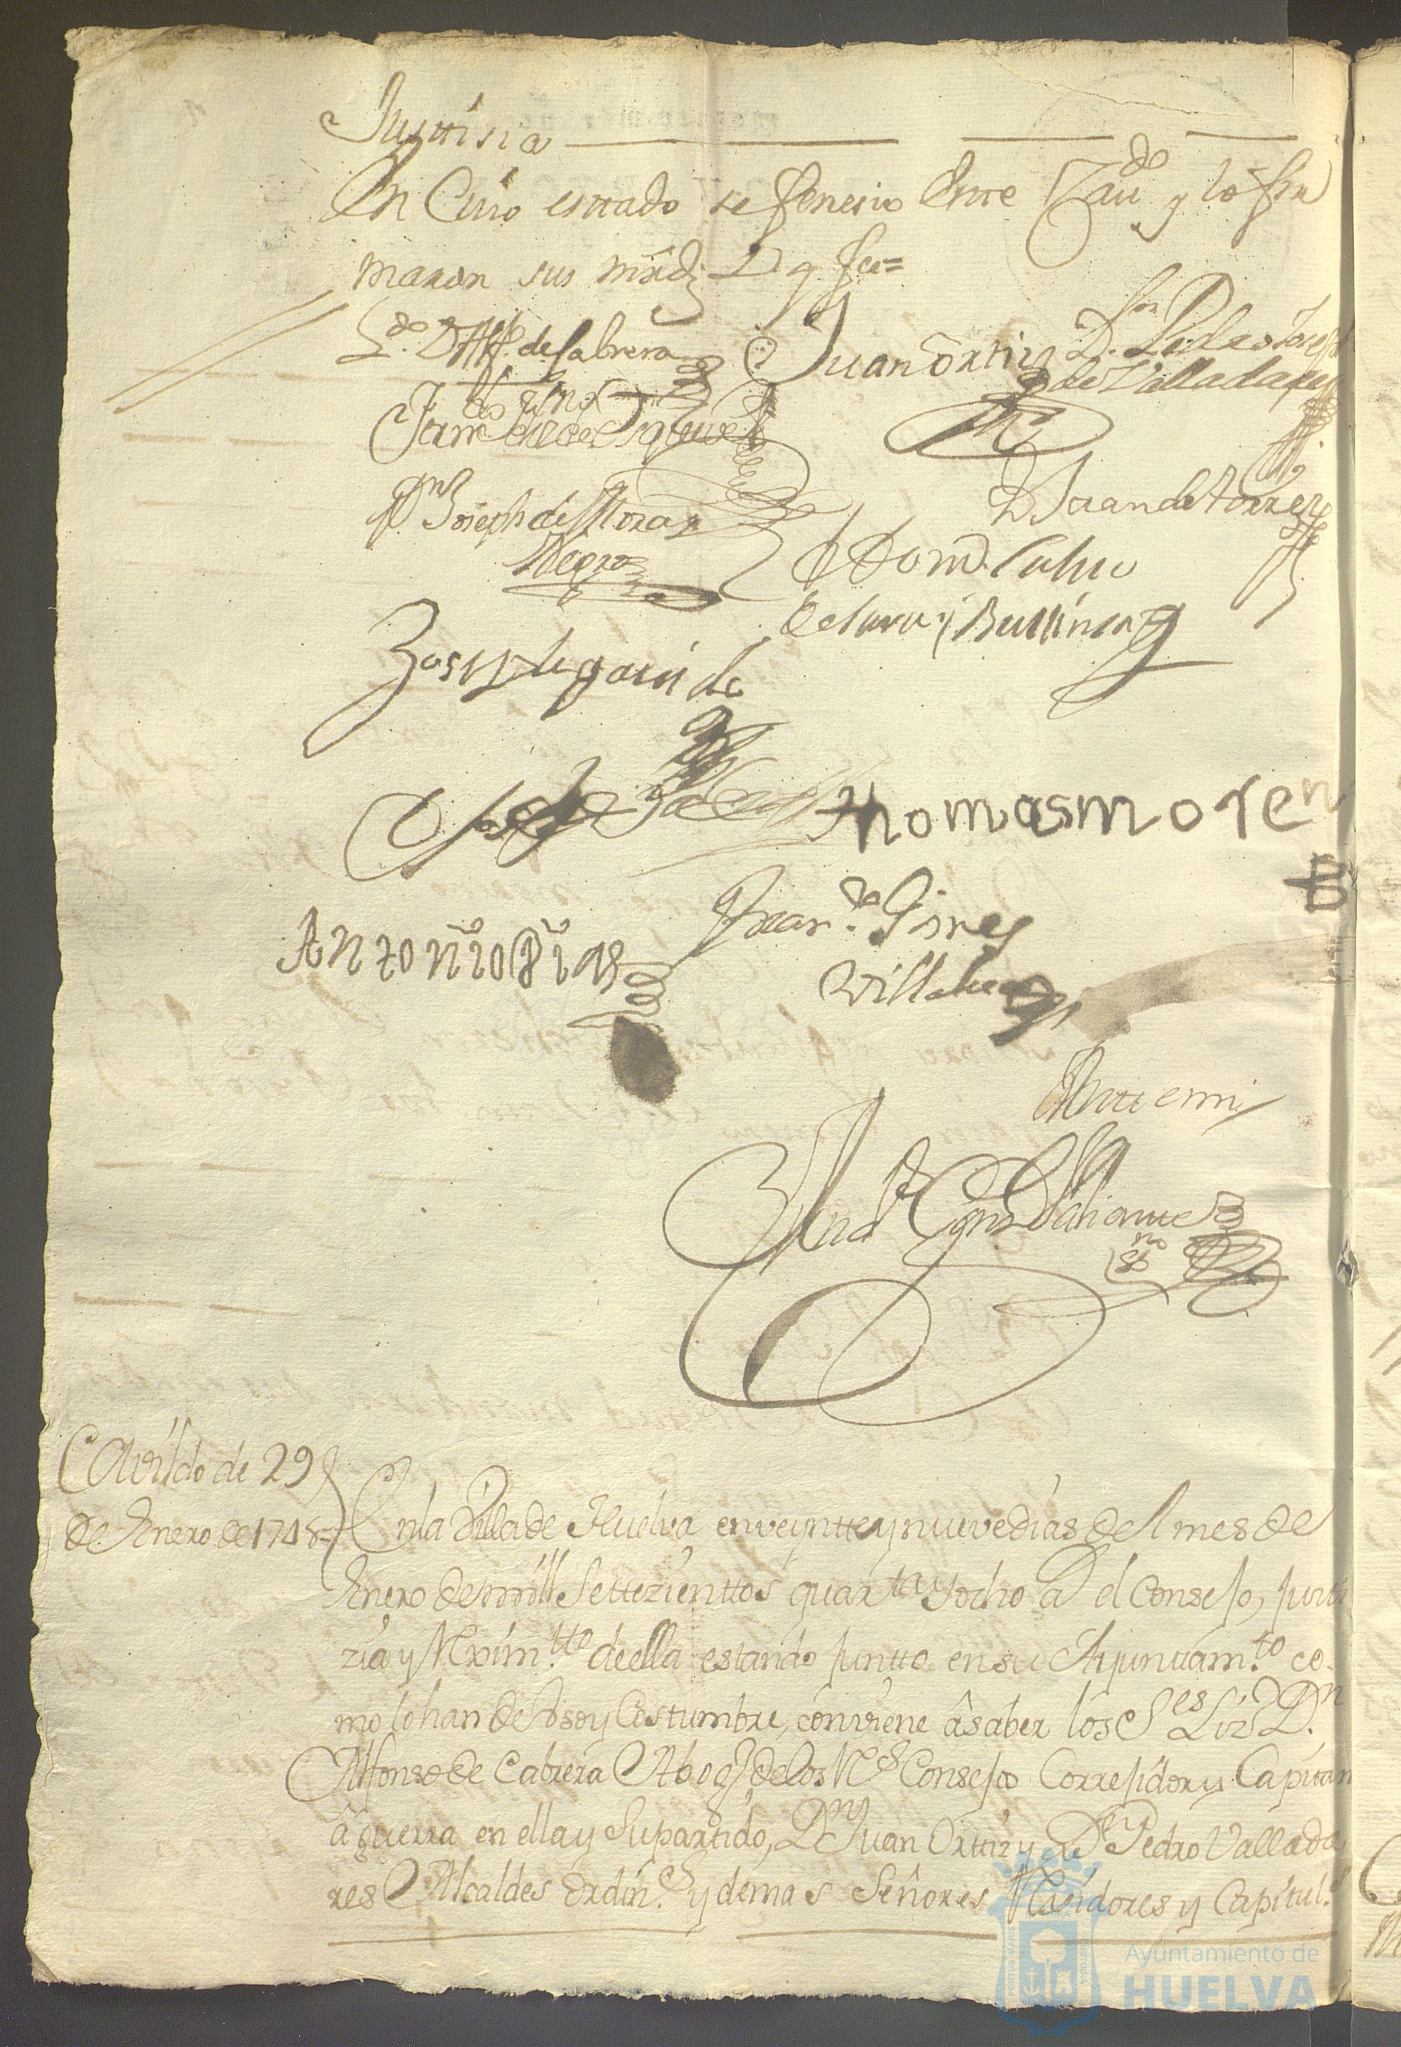 Justtisia
En Cuio esttado se fenesio Estte Cav.do y lo fir
maron sus mrds. D q. fee=
L.do D. Alf.o de Cabrera
Juan Ortiz
D.n Pedro Joseph
de Valladares
D.n Joseph de Moras
Negro
D. Juan de Torres
D Dom.o Calvo
de Lara y Bullinea
Thomas moren
Antonio Dias
Fran.co Gines
Villalva
Antte mi
Cavildo de 29
de Enero de 1748=
En la Villa de Huelva en veyntte y nueve dias del mes de
Enero de mill Settezienttos quar.ta y ocho a.s el Consejo, Justi
zia y Rexim.tto de ella estando juntto en su Ayunttam.to co-
mo lo han de Vso y Costumbre, conviene â saber los S.es Liz.do D.n
Alfonso de Cabrera Abog.do de los R.s Consejos Correjidor y Capitan
â guerra en ella y Su partido, D.n Juan Orttiz y D.n Pedro Vallada
res Alcaldes Ordin.s y demas Señores Rejidores y Capitul.s
Ayuntamiento de
HUELVA